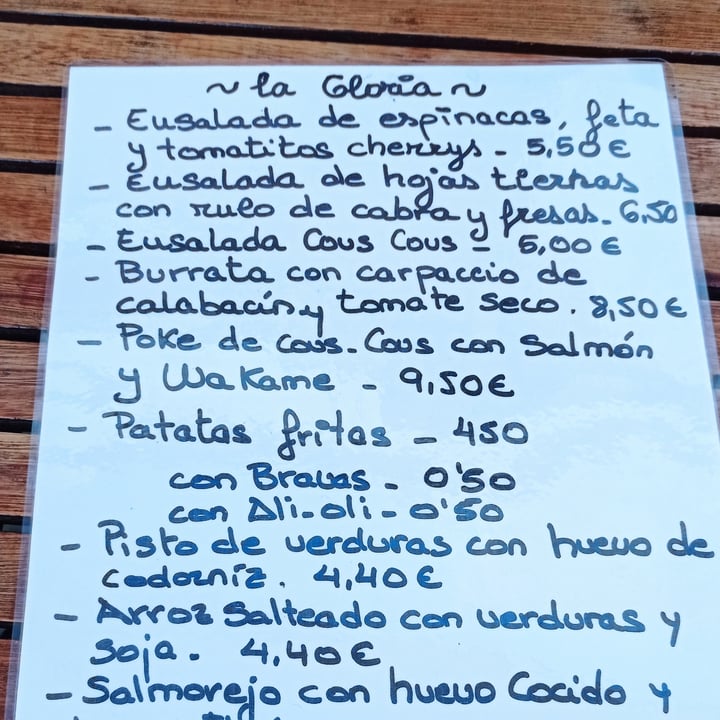 ~ la Gloria ~
- Ensalada de espinacas, feta
y tomatitos cherrys - 5,50 €
- Ensalada de hojas tiernas
con rulo de cabra y fresas. 6,50
- Ensalada Cous Cous - 5,00 €
- Burrata con carpaccio de
calabacín y tomate seco. 8,50 €
- Poke de cous-Cous con Salmón
y Wakame - 9,50 €
- Patatas fritas - 450
con Bravas - 0'50
con Ali-oli - 0'50
- Pisto de verduras con huevo de
codorniz. 4,40 €
- Arroz Salteado con verduras y
Soja. 4,40 €
- Salmorejo con huevo Cocido y